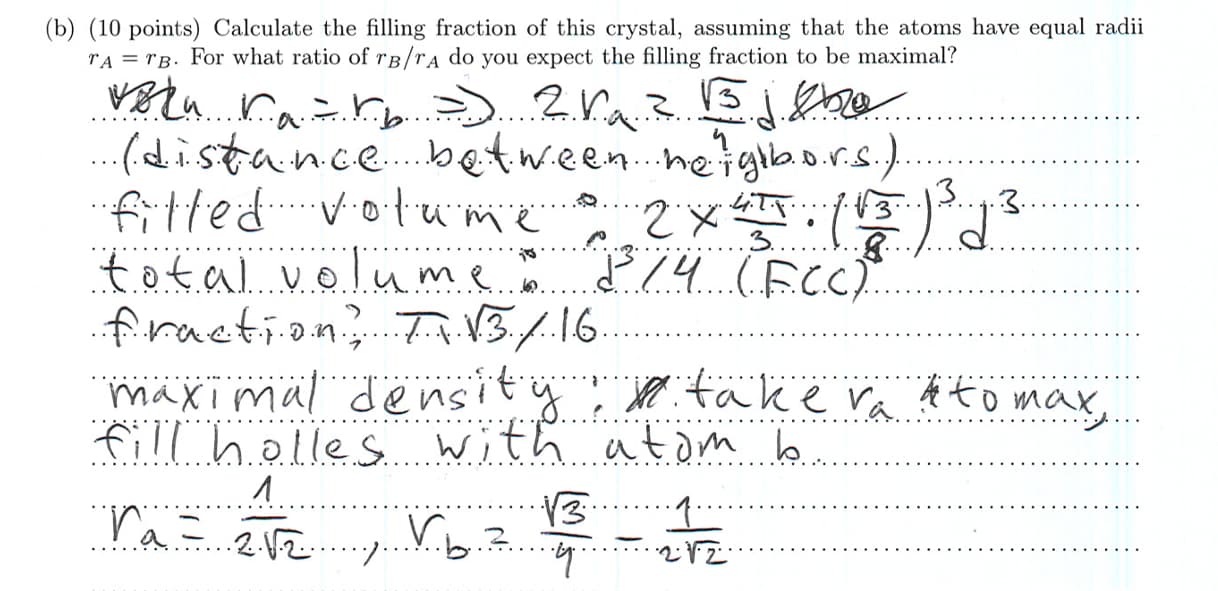 (b) (10 points) Calculate the filling fraction of this crystal, assuming that the atoms have equal radii
r_A = r_B. For what ratio of r_B/r_A do you expect the filling fraction to be maximal?
r_a = r_b => 2r_a = √3/4 d
(distance between neighbors)
filled volume: 2 × 4π/3 · (√3/8)^3 d^3
total volume: d^3/4 (FCC)
fraction: π√3/16
maximal density: take r_a to max,
fill holles with atom b.
r_a = 1/(2√2), r_b = √3/4 - 1/(2√2)